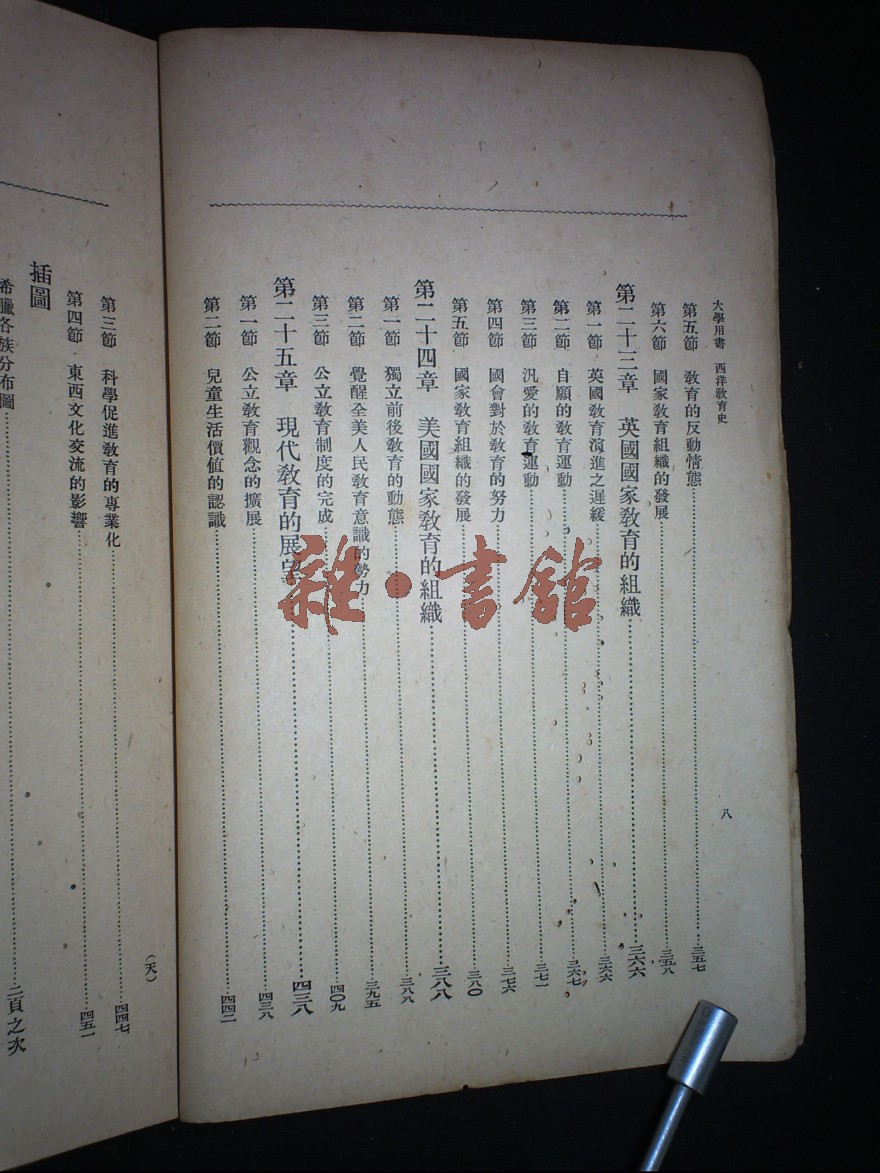 大學用書　西洋教育史
八
第五節　教育的反動情態 三五七
第六節　國家教育組織的發展 三五八
第二十三章　英國國家教育的組織 三六六
第一節　英國教育演進之遲緩 三六六
第二節　自願的教育運動 三六七
第三節　汎愛的教育運動 三七一
第四節　國會對於教育的努力 三七六
第五節　國家教育組織的發展 三八〇
第二十四章　美國國家教育的組織 三八八
第一節　獨立前後教育的動態 三八八
第二節　覺醒全美人民教育意識的勢力 三九五
第三節　公立教育制度的完成 四〇九
第二十五章　現代教育的展望 四三八
第一節　公立教育觀念的擴展 四三八
第二節　兒童生活價值的認識 四四二
(天)
第三節　科學促進教育的專業化 四四七
第四節　東西文化交流的影響 四五一
插圖
希臘各族分布圖 二頁之次
雜·書館